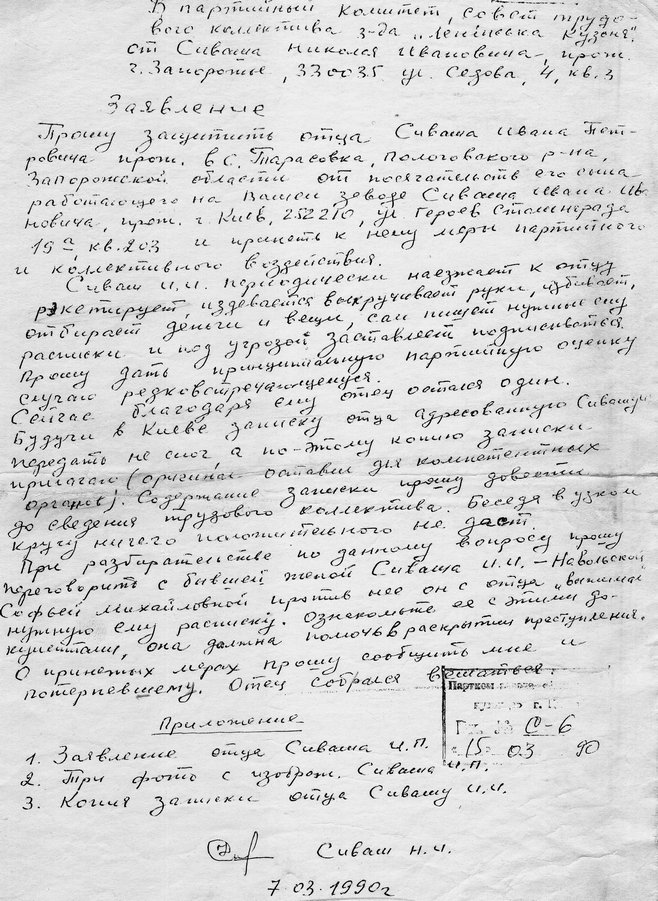 В партийный комитет, совет трудо-
вого коллектива з-да „Ленінська Кузня"
от Сиваша Николая Ивановича, прож.
г. Запорожье, 330035 ул. Седова, 4, кв. 3
Заявление
Прошу защитить отца Сиваша Ивана Пет-
ровича прож. в с. Тарасовка, Пологовского р-на,
Запорожской области от посягательств его сына
работающего на Вашем заводе Сиваша Ивана Ива-
новича, прож. г. Киев, 252210, ул Героев Сталинграда
19а, кв. 203 и принять к нему меры партийного
и коллективного воздействия.
Сиваш И.И. периодически наезжает к отцу
рэкетирует, издевается выкручивает руки, избивает,
отбирает деньги и вещи, сам пишет нужные ему
расписки и под угрозой заставляет подписываться.
Прошу дать принципиальную партийную оценку
случаю редковстречающемуся.
Сейчас благодаря ему отец остался один.
Будучи в Киеве записку отца адресованную Сивашу
передать не смог, а по-этому копию записки
прилагаю (оригинал оставил для компетентных
органов). Содержание записки прошу довести
до сведения трудового коллектива. Беседа в узком
кругу ничего положительного не даст.
При разбирательстве по данному вопросу прошу
переговорить с бывшей женой Сиваша И.И. - Навольской
Софьей Михайловной против нее он с отца
нужную ему расписку. Ознакомьте ее с этими до-
кументами, она должна помочь в раскрытии преступления.
О принятых мерах прошу сообщить мне и
потерпевшему. Отец собрался вешаться.
Партком
г.
С-6
15 03 90
Приложение
1. Заявление отца Сиваша И.П.
2. Три фото с изображ. Сиваша И.П.
3. Копия записки отца Сивашу И.И.
Сиваш Н.И.
7.03.1990г